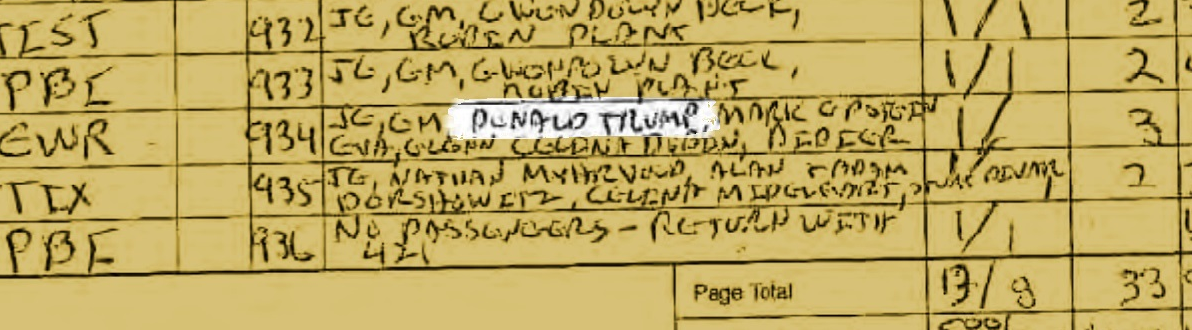 TEST 932 JE, GM, GWENDOLYN BECK, 1/1 2
RUBEN PLANT
PBI 933 JE, GM, GWENDOLYN BECK, 1/1 2
PLANT
EWR 934 JE, GM, DONALD TRUMP, MARK EPSTEIN 1/ 3
EVA, GLENN CELINA DUBIN, DIDIER
TIX 935 JE, NATHAN MYHRVOLD, ALAN + ADAM 2
DERSHOWITZ, CELINA MIDELFART,
PBI 936 NO PASSENGERS - RETURN WITH 1/1
421
Page Total 17/9 33